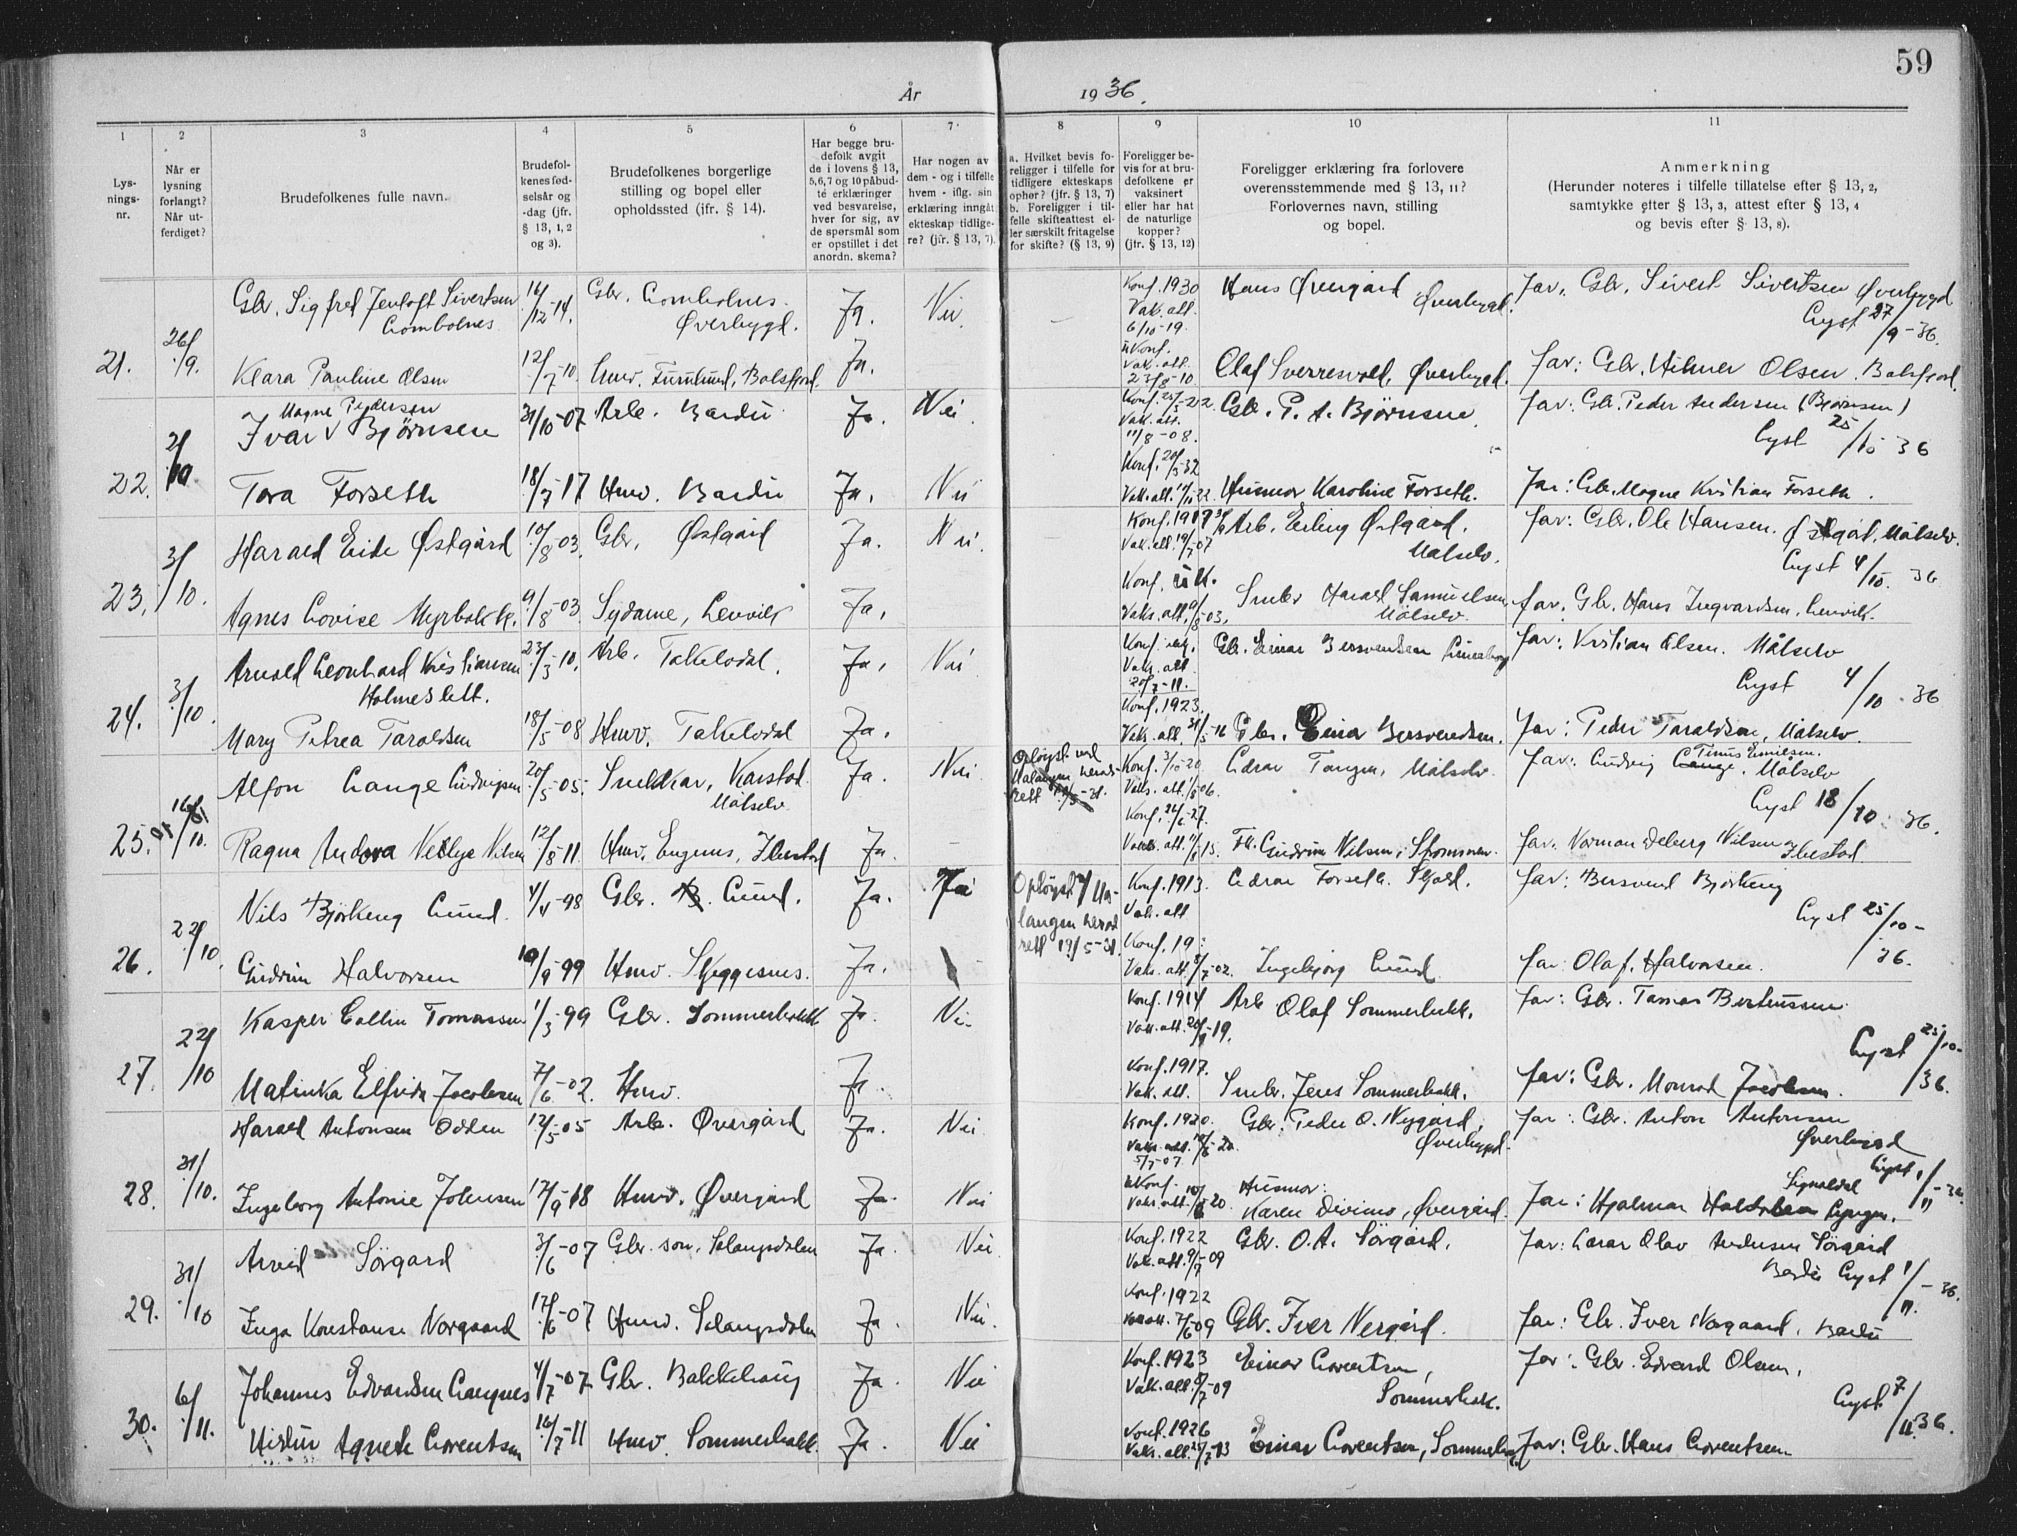 59
År 1936.
1 2 3 4 5 6 7 8 9 10 11
Lysningsnr.
Når er lysning forlangt? Når utferdiget?
Brudefolkenes fulle navn.
Brudefolkenes fødselsår og -dag (jfr. § 13, 1, 2 og 3).
Brudefolkenes borgerlige stilling og bopel eller opholdssted (jfr. § 14).
Har begge brudefolk avgit de i lovens § 13, 5,6,7 og 10 påbudte erklæringer ved besvarelse, hver for sig, av de spørsmål som er opstillet i det anordn. skema?
Har nogen av dem - og i tilfelle hvem - iflg. sin erklæring inngåt ekteskap tidligere? (jfr. § 13, 7).
a. Hvilket bevis foreligger i tilfelle for tidligere ekteskaps ophør? (jfr. § 13, 7) b. Foreligger i tilfelle skifteattest eller særskilt fritagelse for skifte? (§ 13, 9)
Foreligger bevis for at brudefolkene er vaksinert eller har hat de naturlige kopper? (jfr. § 13, 12)
Foreligger erklæring fra forlovere overensstemmende med § 13, 11? Forlovernes navn, stilling og bopel.
Anmerkning (Herunder noteres i tilfelle tillatelse efter § 13, 2, samtykke efter § 13, 3, attest efter § 13, 4 og bevis efter § 13, 8).
21. 26/9.
Gbr. Sigfred Jentoft Sivertsen 16/12-14. Gbr. Øverbygd. Ja. Nei. Konf. 1930 Vak. att. 6/10-19. Hans Øvergård Øverbygd. far: Gbr. Sivert Sivertsen Øverbygd Lyst 27/9-36.
Klara Pauline Olsen 12/7-10 Balsfjord. Ja. Konf. Vak. att. 23/8-10 Olaf Sverresvold, Øverbygd. far: Gbr. Hilmer Olsen Balsfjord.
22. 2/10.
Ivar Magne Pedersen Bjørnsen 31/10-07 Arb. Bardu Ja. Nei. Konf. 22. Vak. att. 11/8-08. Gbr. P. A. Bjørnsen. far: Gbr. Peder Andersen (Bjørnsen) Lyst 25/10 36
Tora Forseth 18/7-17 Hmv. Bardu Ja. Nei Konf. 32 Vak. att. 22. Husmor Karoline Forseth. far: Gbr. Magne Kristian Forseth.
23. 3/10.
Harald Eide Østgård 10/8-03. Gbr. Østgård Ja. Nei. Konf. 1917 Vak. att. 07 Arb. Erling Østgård. Målselv. far: Gbr. Ole Hansen. Østgård, Målselv. Lyst 4/10. 36
Agnes Lovise Myrbakk. 9/8-03. Sydame, Lenvik Ja. Konf. Vaks. att. 03. Harald Samuelsen Målselv. far: Gbr. Hans Ingvardsen, Lenvik.
24. 3/10.
Arnold Leonhard Kristiansen Holmeslett. 23/3-10. Arb. Takelvdal. Ja. Nei Konf. Vak. att. 20/7-11. Gbr. Einar Bersvendsen far: Kristian Olsen. Målselv Lyst 4/10-36
Mary Petrea Taraldsen 18/5-08 Hmv. Takelvdal Ja. Konf. 1923. Vak. att. Gbr. Einar Bersvendsen. far: Peder Taraldsen, Målselv.
25. 16/10.
Alfon Lange Ludvigsen 20/5-05. Snekker, Karstad Målselv Ja. Nei Konf. 20 Vaks. att. 06. Edvar Tangen, Målselv. far: Ludvig Tinus Emilsen. Målselv Lyst 18/10. 36.
Ragna Andora Nilsen 12/8-11 Hmv. Engenes, Ibestad Ja. Konf. 24/6-27. Vak. att. 15. Frk. Gudrun Nilsen, far: Norman Deberg Nilsen Ibestad.
26. 22/10.
Nils Bjørkeng Lund. 4/4-98 Gbr. Lund. Ja. Ja Opløyst Malangen heredrett 19/5-31. Konf. 1913. Vak. att Edvar Forseth. Skjold. far: Bersvend Bjørkeng Lyst 25/10-36.
Gudrun Halvorsen 10/9-99 Hmv. Skjeggesnes. Ja. Konf. 19 Vak. att. 02. Ingebjørg Lund far: Olaf. Halvorsen.
27. 22/10
Kasper Collin Tomassen 1/3-99 Gbr. Sommerbakk Ja. Nei. Konf. 1914 Vak. att. 19. Arb. Olaf Sommerbakk. far: Gbr. Tomas Berteussen Lyst 25/10-36.
Matinka Elfrida Jacobsen 7/6-02. Hmv. Ja. Konf. 1917. Vak. att. Jens Sommerbakk. far: Gbr. Monrad Jacobsen.
28. 31/10.
Harald Antonsen Odden 12/5-05 Arb. Øvergård Ja. Nei. Konf. 1920. Vak. att. 5/7-07 Gbr. Peder O. Nygård, Øverbygd. far: Gbr. Anton Antonsen Øverbygd Lyst 1/11-36
Ingeborg Antonie Johnsen 17/9-18 Hmv. Øvergård Ja. Nei Vak. att. 20. Husmor: Karen Øvergård. far: Hjalmar Signaldal Lyngen.
29. 31/10
Arvid Sörgard 3/6-07 Gbr. son, Salangsdalen Ja. Nei Konf. 1922 Vak. att. 9/7-09 Gbr. O. A. Sörgård. far: Olav Andersen Sörgård Bardu Lyst 1/11.-36.
Inga Konstanse Norgaard 17/6-07 Hmv. Salangsdalen Ja. Nei. Konf. 1922 Vak. att. 7/6 09 Gbr. Iver Nergård. far: Gbr. Iver Norgaard, Bardu
30. 6/11.
Johannes Edvardsen Langnes 4/7-07 Gbr. Bakkehaug Ja. Nei Konf. 1923 Vak. att. 7-09 Einar Lorentsen, Sommerbakk. far: Gbr. Edvard Olsen. Lyst 7/11. 36.
Agnete Lorentsen 16/7-11 Hmv. Sommerbakk. Ja. Nei Konf. 1926 Vak. att. 13 Einar Lorentsen, far: Gbr. Hans Lorentsen